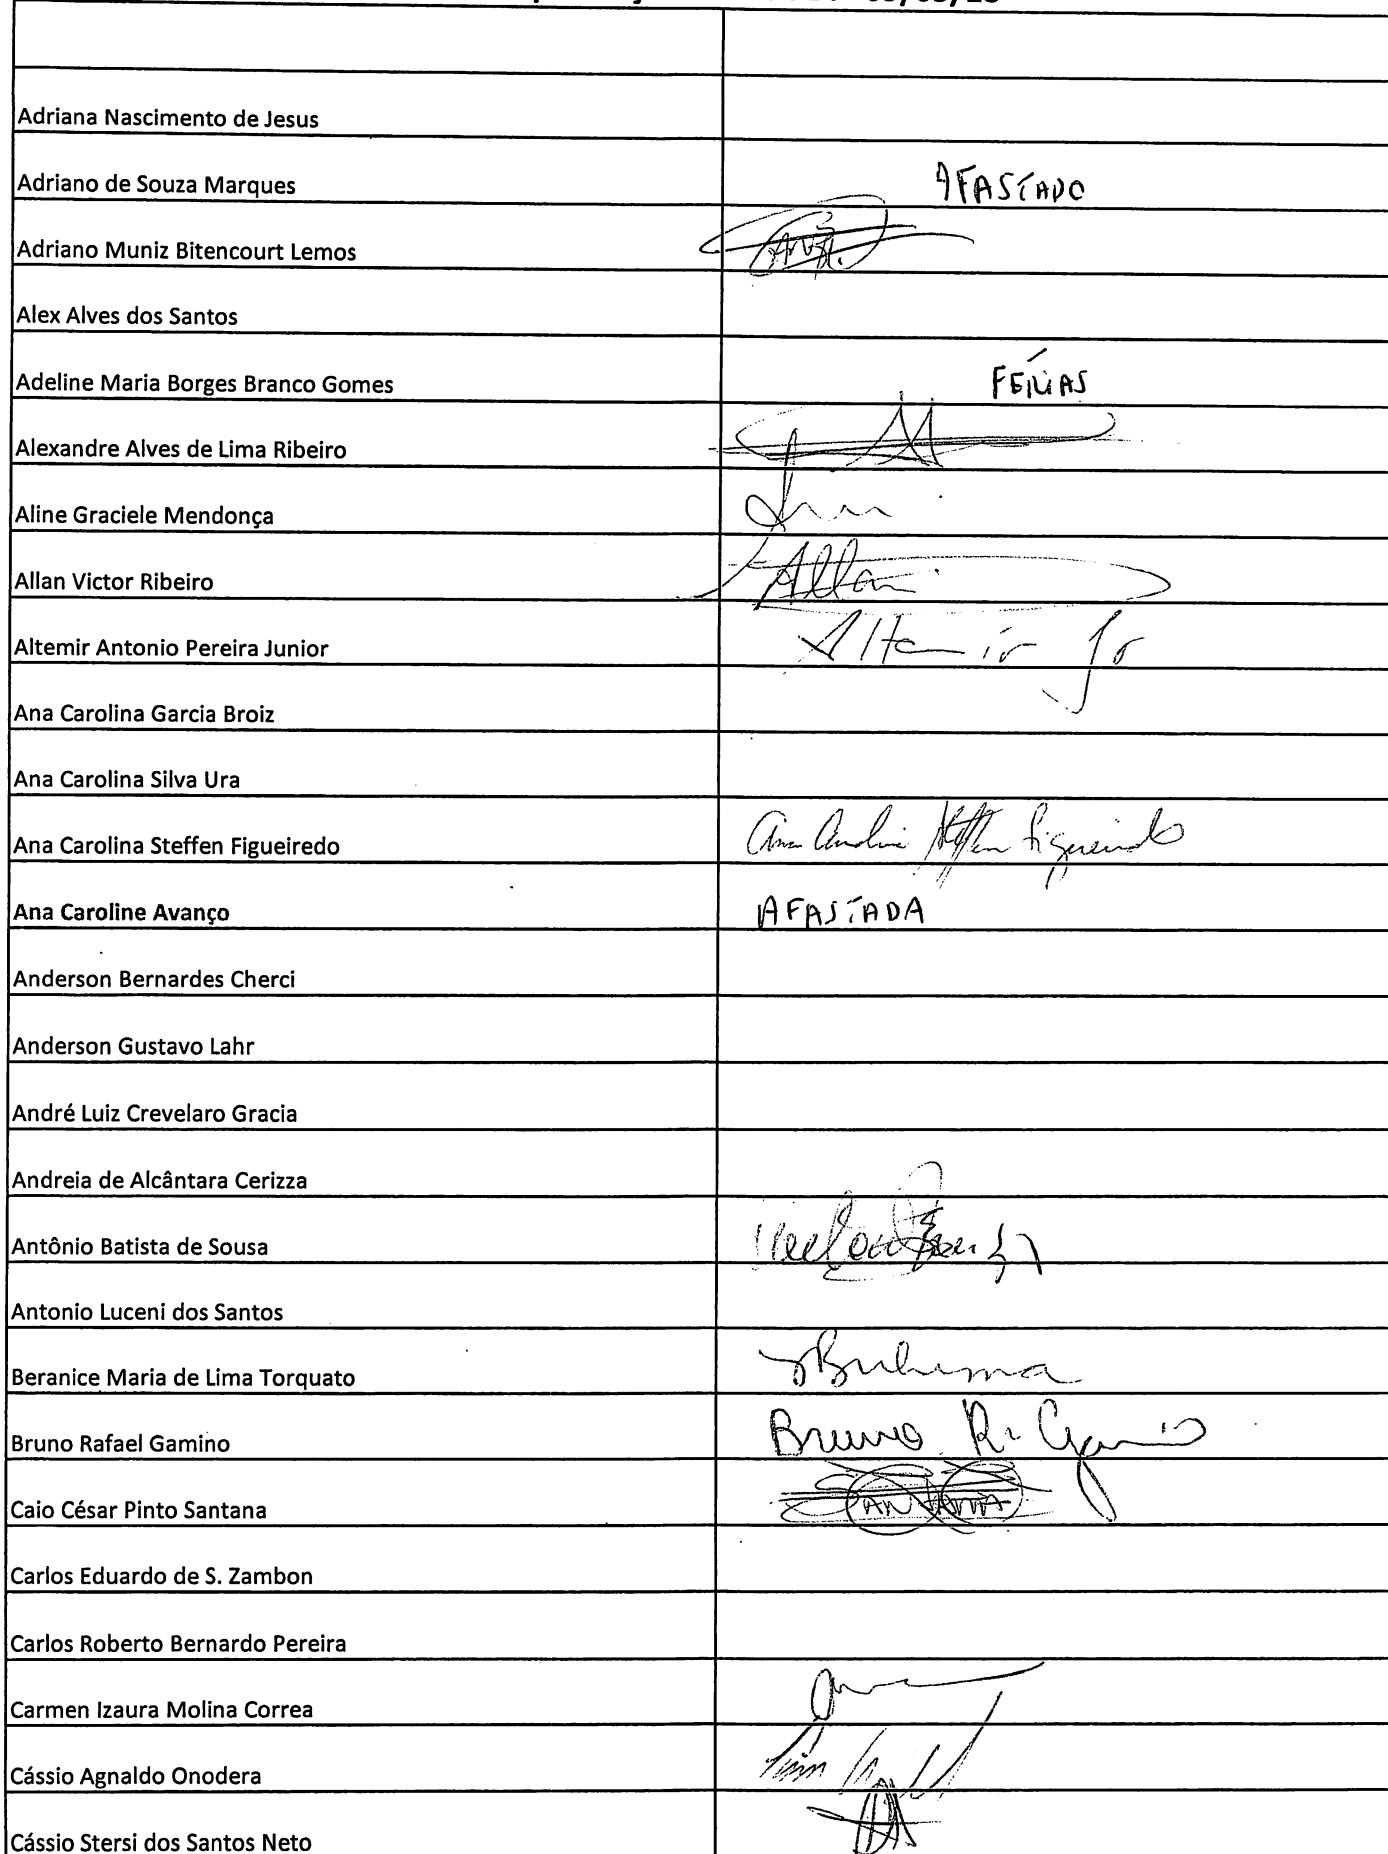 Adriana Nascimento de Jesus
Adriano de Souza Marques AFASTADO
Adriano Muniz Bitencourt Lemos
Alex Alves dos Santos
Adeline Maria Borges Branco Gomes FÉRIAS
Alexandre Alves de Lima Ribeiro
Aline Graciele Mendonça
Allan Victor Ribeiro Allan
Altemir Antonio Pereira Junior Altemir Jr
Ana Carolina Garcia Broiz
Ana Carolina Silva Ura
Ana Carolina Steffen Figueiredo Ana Carolina Steffen Figueiredo
Ana Caroline Avanço AFASTADA
Anderson Bernardes Cherci
Anderson Gustavo Lahr
André Luiz Crevelaro Gracia
Andreia de Alcântara Cerizza
Antônio Batista de Sousa
Antonio Luceni dos Santos
Beranice Maria de Lima Torquato
Bruno Rafael Gamino Bruno R. Gamino
Caio César Pinto Santana SANTANA
Carlos Eduardo de S. Zambon
Carlos Roberto Bernardo Pereira
Carmen Izaura Molina Correa
Cássio Agnaldo Onodera
Cássio Stersi dos Santos Neto